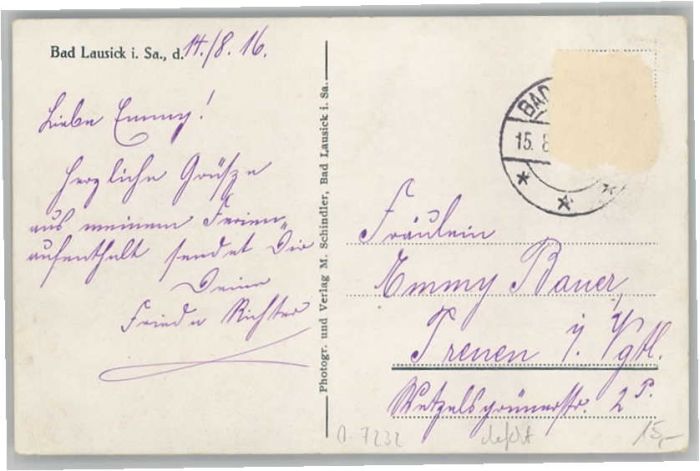 Bad Lausick i. Sa., d. 14./8. 16.
Liebe Emmy!
Herzliche Grüße
aus meinem Ferien„
aufenthalt sendet Dir
Deine
Frieda Richter
Photogr. und Verlag M. Schindler, Bad Lausick i. Sa.
BAD
15. 8
Fräulein
Emmy Bauer,
Treuen i. Vgtl.
Wetzelsgrünerstr. 2 P.
D. 7232
defekt
15,-